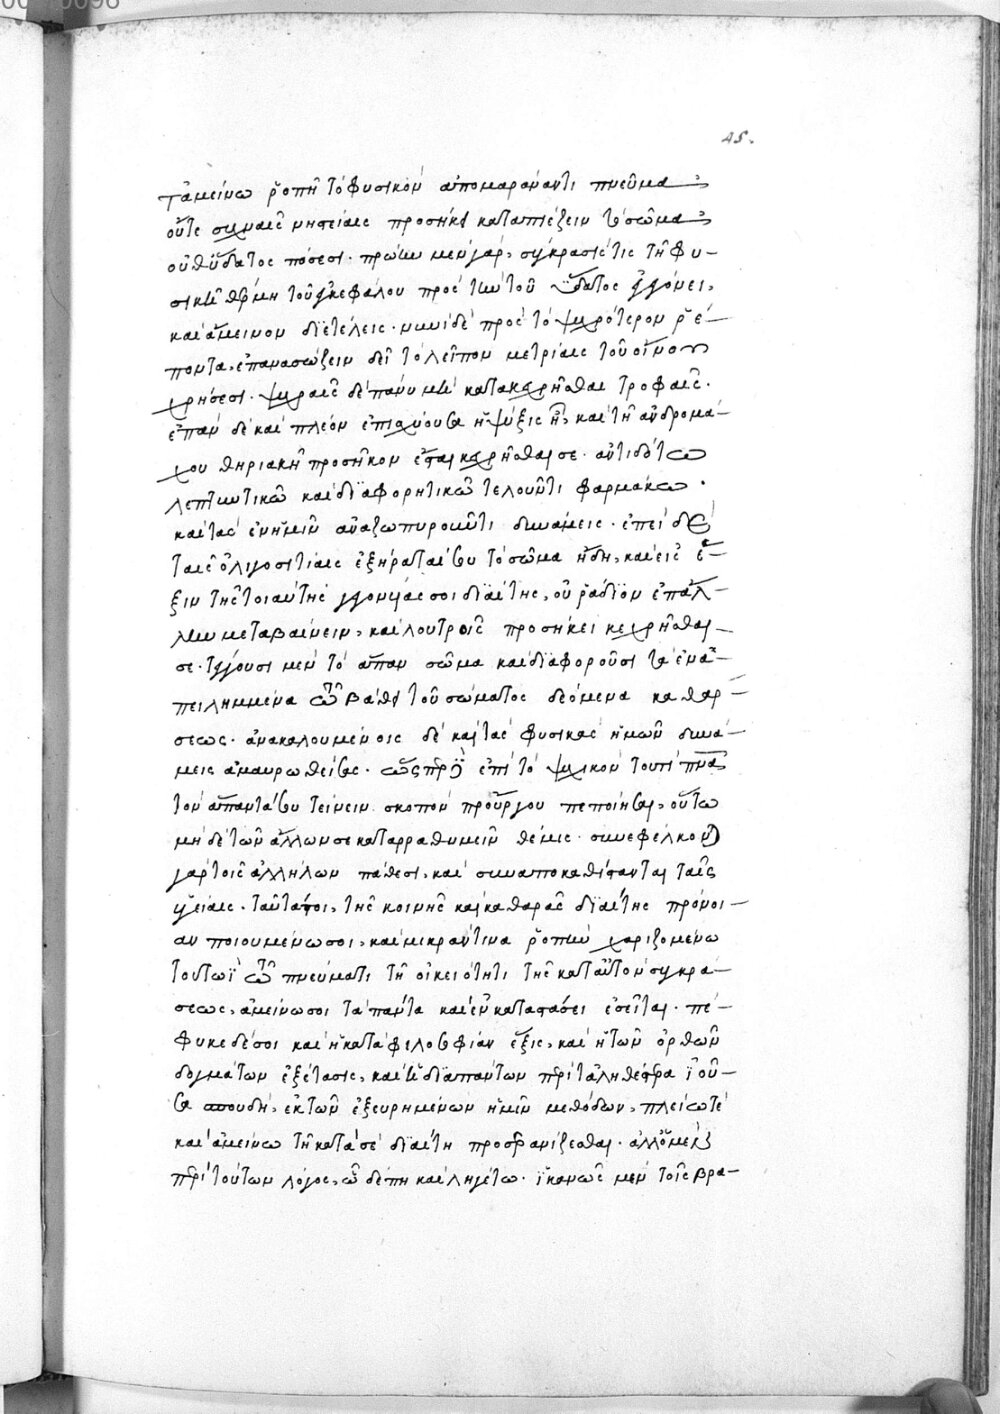 45.
τἀμείνω ῥοπῇ τὸ φυσικὸν ἀπομαραίνοντι πνεῦμα
οὔτε συχναῖς νηστείαις προσήκει καταπιέζειν τὸ σῶμα
οὐθ' ὕδατος πόσεσι. πρώην μὲν γὰρ, σύγκρασίς τις τῇ φυ-
σικῇ θέρμῃ τοῦ ἐγκεφάλου πρὸς τὴν τοῦ ὕδατος ἐγγόνει,
καὶ ἄμεινον διετέλεις. νυνὶ δὲ πρὸς τὸ ψυχρότερον ῥέ-
ποντα, ἐπανασώζειν δεῖ τὸ λεῖπον μετρίαις τοῦ οἴνου
χρήσεσι. ψυχραῖς δὲ πάνυ μὴ κατακεχρῆσθαι τροφαῖς.
ἐπὰν δὲ καὶ πλέον ἐπισχύουσα ἡ ψύξις ᾖ, καὶ τῇ ἀνδρομά-
χου θηριακῇ προσῆκον ἐστὶ κεχρῆσθαι σε. ἀντιδότῳ
λεπτυντικῷ καὶ διαφορητικῷ τελοῦντι φαρμάκῳ.
καὶ τὰς ἐν ἡμῖν ἀναζωπυροῦντι δυνάμεις. ἐπεὶ δὲ
ταῖς ὀλιγοσιτίαις ἐξήρανταί σου τὸ σῶμα ἤδη, καὶ εἰς ἕ-
ξιν τῆς τοιαύτης γεγονυίας σοι διαίτης, οὐ ῥάδιον ἐπ' ἄλ-
λην μεταβαίνειν, καὶ λουτροῖς προσήκει κεχρῆσθαί
σε. τέγγουσι μὲν τὸ ἅπαν σῶμα καὶ διαφοροῦσι τὰ ἐνα-
πειλημμένα ἐν τῷ βάθει τοῦ σώματος δεόμενα καθάρ-
σεως. ἀνακαλουμένοις δὲ καὶ τὰς φυσικὰς ἡμῶν δυνά-
μεις ἀμαυρωθείσας. ὥσπερ ἐπὶ τὸ ψυχικὸν τουτὶ πνα
τὸν ἅπαντά σου τείνειν σκοπὸν προὔργου πεποίησαι, οὕτω
μηδὲ τῶν ἄλλων σε καταρραθυμεῖν θέμις. συνεφέλκονται
γὰρ τοῖς ἀλλήλων πάθεσι, καὶ συναποκαθίστανται ταῖς
ὑγείαις. ταῦτά τοι, τῆς κοινῆς καὶ καθαρᾶς διαίτης πρόνοι-
αν ποιουμένῳ σοι, καὶ μικράν τινα ῥοπὴν χαριζομένῳ
τουτωῒ τῷ πνεύματι τῇ οἰκειότητι τῆς κατ' αὐτὸν συγκρά-
σεως, ἀμείνω σοι τὰ πάντα καὶ ἐν καταστάσει ἐσεῖται. πέ-
φυκε δέ σοι καὶ ἡ κατὰ φιλοσοφίαν ἕξις, καὶ ἡ τῶν ὀρθῶν
δογμάτων ἐξέτασις, καὶ ἡ διὰ πάντων περὶ τἀληθέστερα ἰοῦ-
σα σπουδή, ἐκ τῶν ἐξευρημένων ἡμῖν μεθόδων, πλείω τέ
καὶ ἀμείνω τῇ κατὰ σὲ διαίτῃ προσερανίζεσθαι. ἀλλ' ὁ μὲν
περὶ τούτων λόγος, ὧδέ πη καὶ ληγέτω. ἱκανῶς μὲν τοῖς βρα-